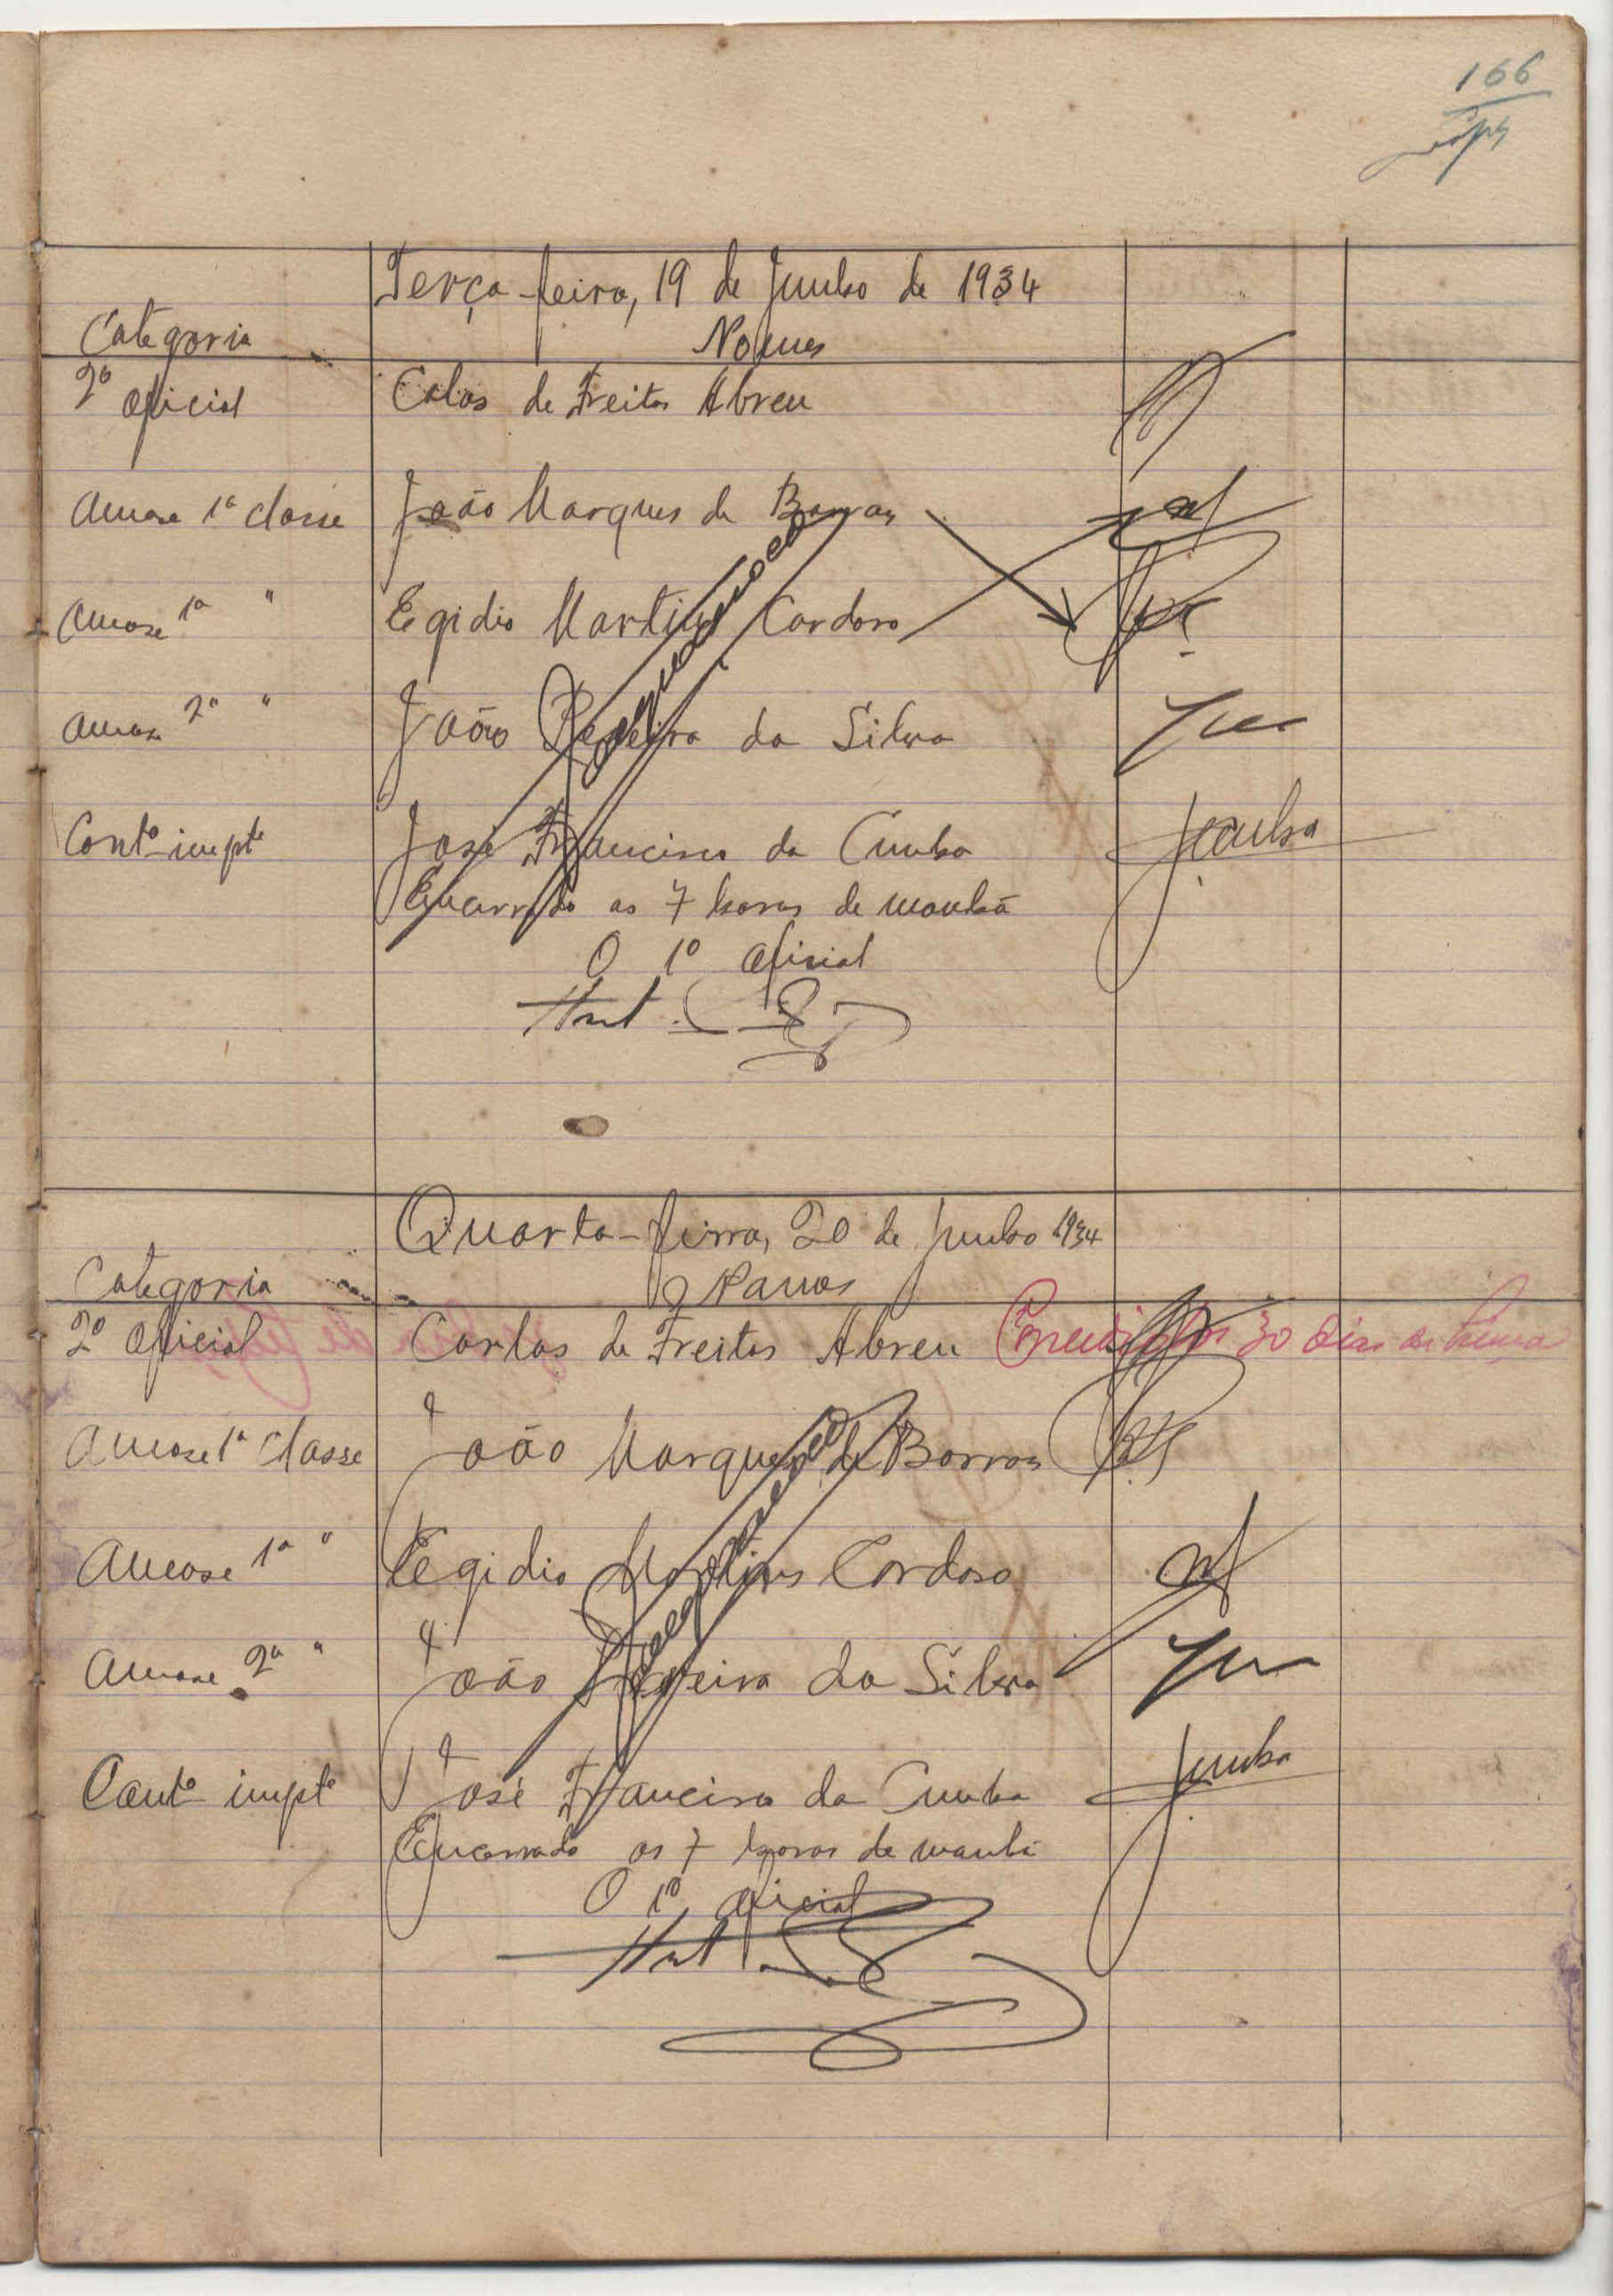 166
Terça-feira, 19 de Junho de 1934
Categoria Nomes
2º oficial Calos de Freitas Abreu
Amase 1ª classe João Marques de Barros
Amase 1ª " Egidio Martins Cardoso
Amase 2ª " João Pereira da Silva
Contº impte José Francisco da Cunha JCunha
Encerrado as 7 horas de manhã
O 1º oficial
Quarta-feira, 20 de Junho 1934
Categoria
2º oficial Carlos de Freitas Abreu 30 dias de licença
Amase 1ª classe João Marques de Barros
Amease 1ª " Egidio Martins Cardoso
Amase 2ª " João Pereira da Silva
Contº impte José Francisco da Cunha JCunha
Encerrado as 7 horas de manhã
O 1º oficial